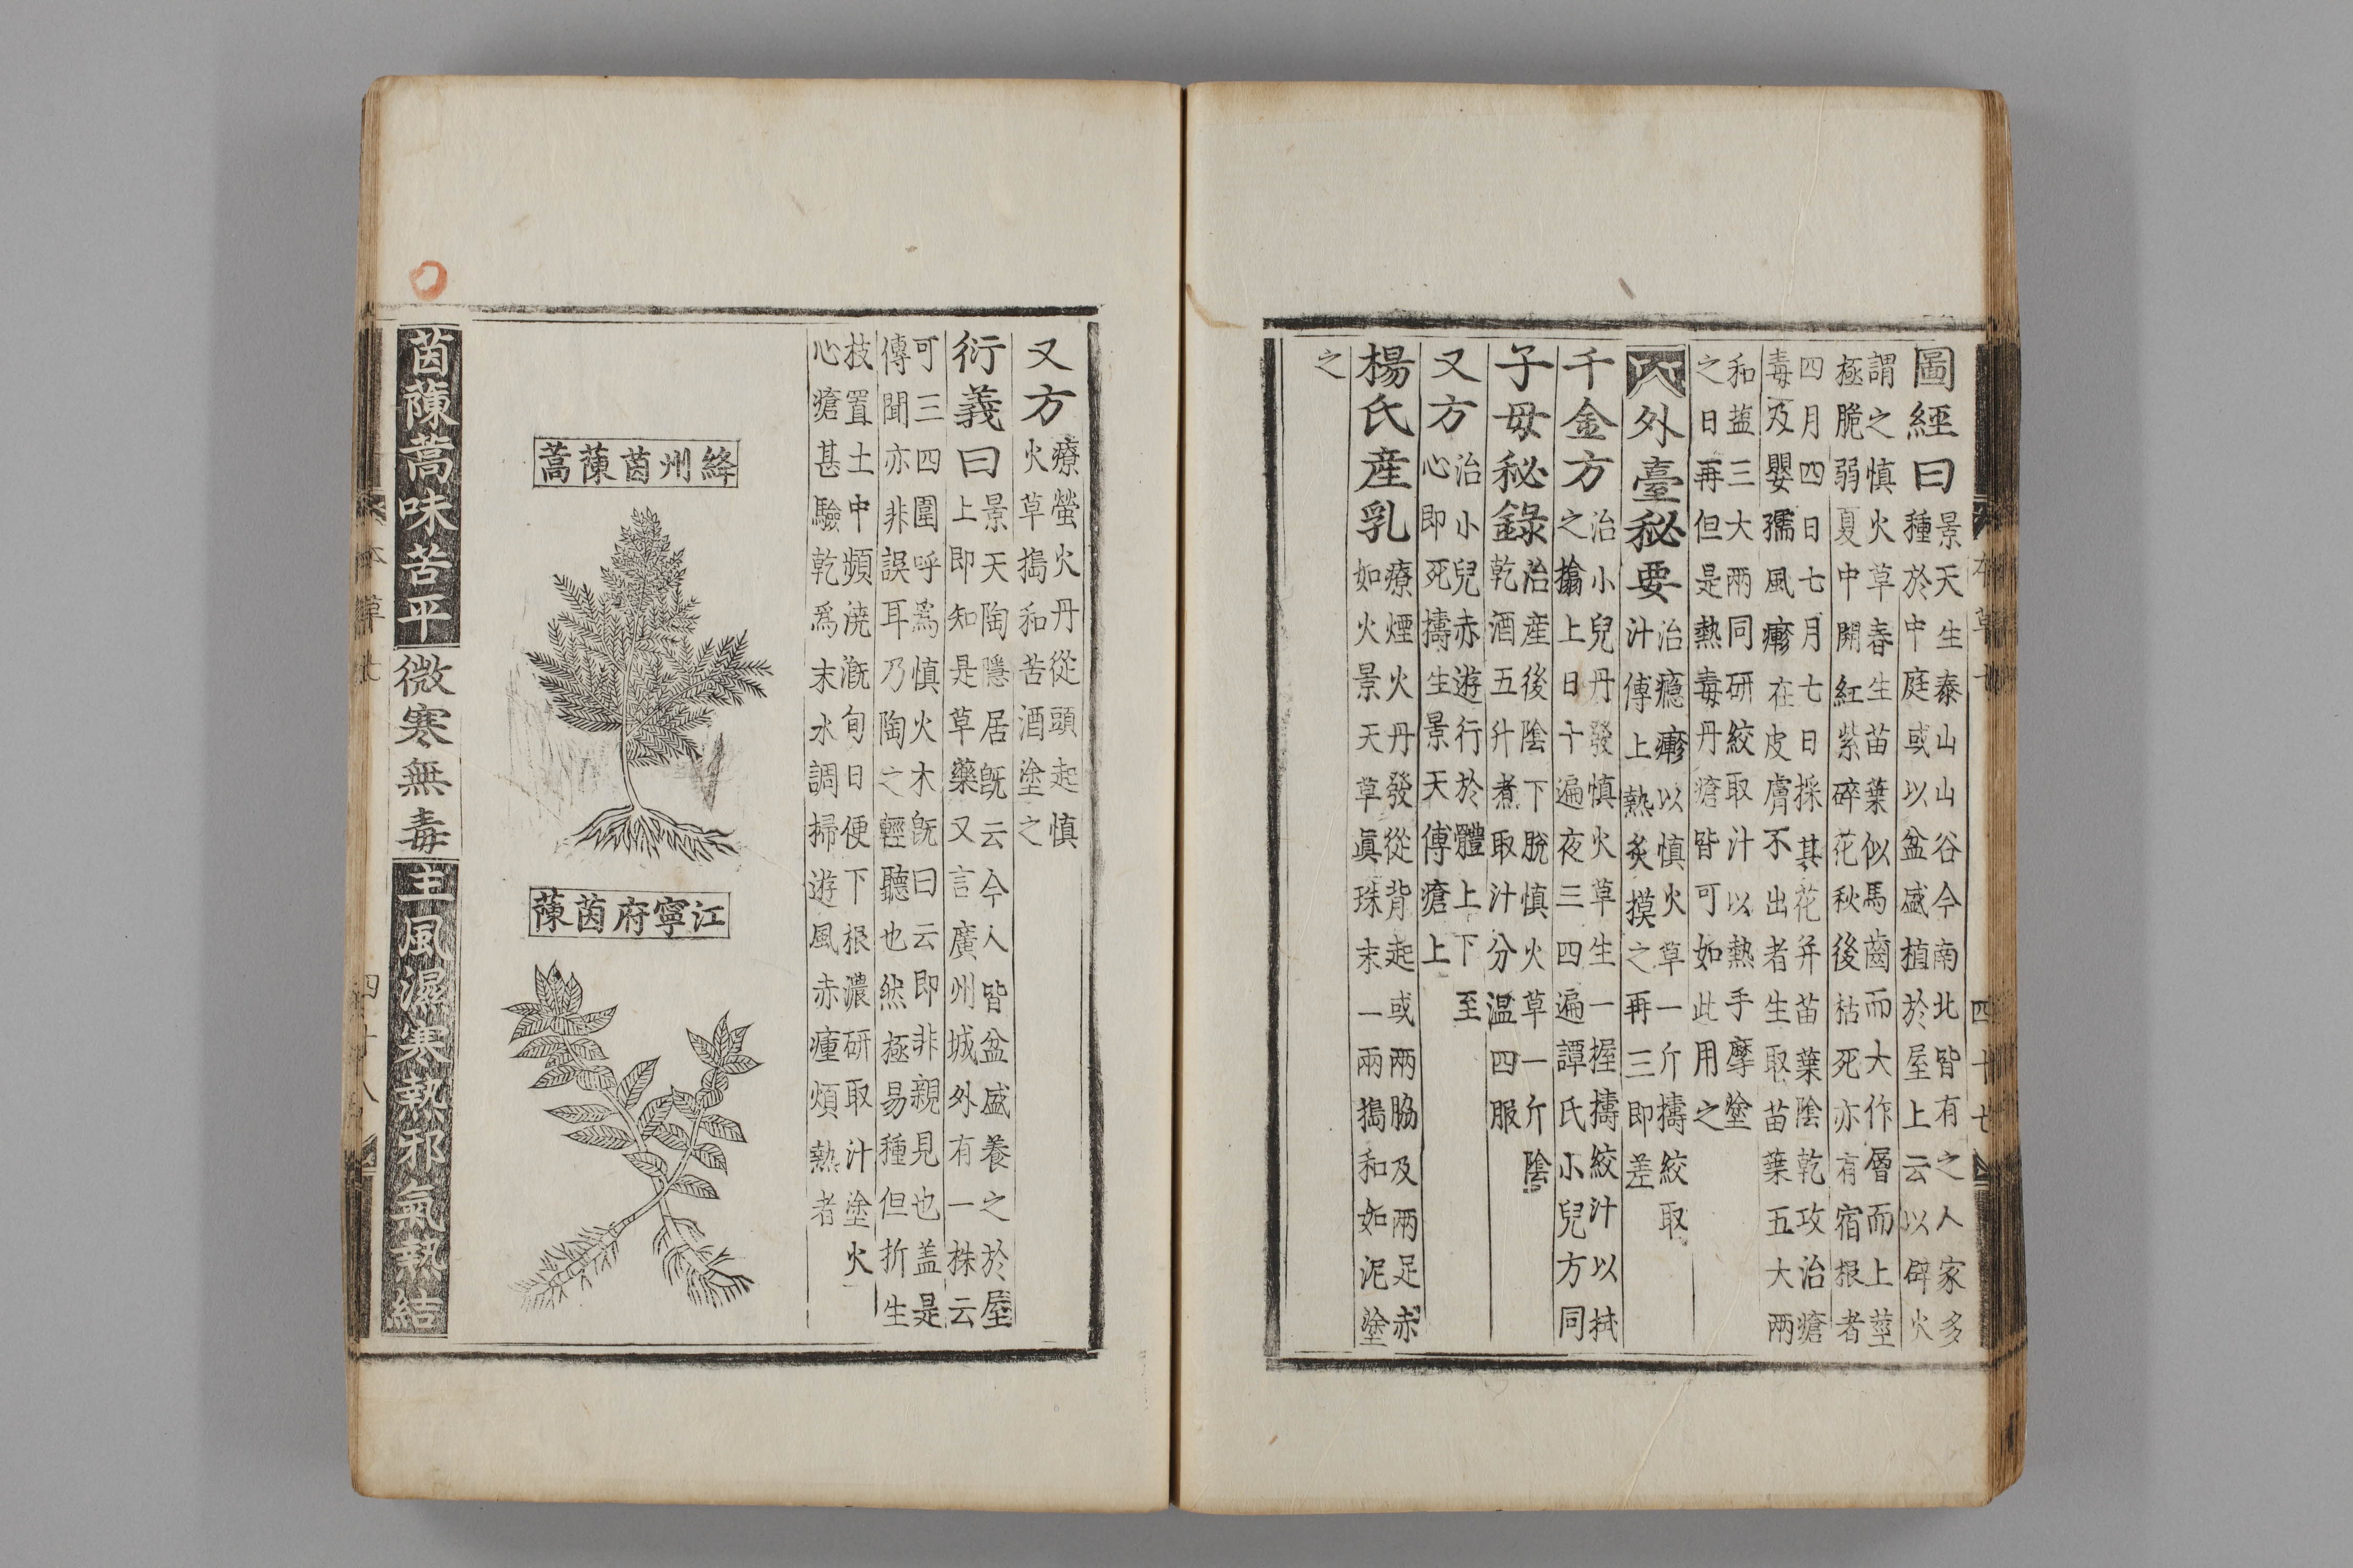 圖經曰景天生泰山山谷今南北皆有之人家多
種於中庭或以盆盛植於屋上云以辟火
謂之慎火草春生苗葉似馬齒而大作層而上莖
極脆弱夏中開紅紫碎花秋後枯死亦有宿根者
四月四日七月七日採其花并苗葉陰乾攻治瘡
毒及嬰孺風瘮在皮膚不出者生取苗葉五大兩
和盐三大兩同研絞取汁以熱手摩塗
之日再但是熱毒丹瘡皆可如此用之
外臺秘要治癮瘮以慎火草一斤擣絞取
汁傅上熱炙摸之再三即差
千金方治小兒丹發慎火草生一握擣絞汁以拭
之搨上日十遍夜三四遍譚氏小兒方同
子母秘錄治産後陰下脫慎火草一斤陰
乾酒五升煮取汁分温四服
又方治小兒赤遊行於體上下至
心即死擣生景天傅瘡上
楊氏産乳療煙火丹發從背起或兩脇及兩足赤
如火景天草眞珠末一兩搗和如泥塗
之
本草七
四十七
又方療螢火丹從頭起慎
火草搗和苦酒塗之
衍義曰景天陶隱居既云今人皆盆盛養之於屋
上即知是草藥又言廣州城外有一株云
可三四圍呼爲慎火木既曰云即非親見也盖是
傳聞亦非誤耳乃陶之輕聽也然極易種但折生
枝置土中頻澆漑旬日便下根濃研取汁塗火
心瘡甚驗乾爲末水調掃遊風赤瘇煩熱者
絳州茵蔯蒿
江寧府茵蔯
茵蔯蒿味苦平微寒無毒主風濕寒熱邪氣熱結
本草七
四十八